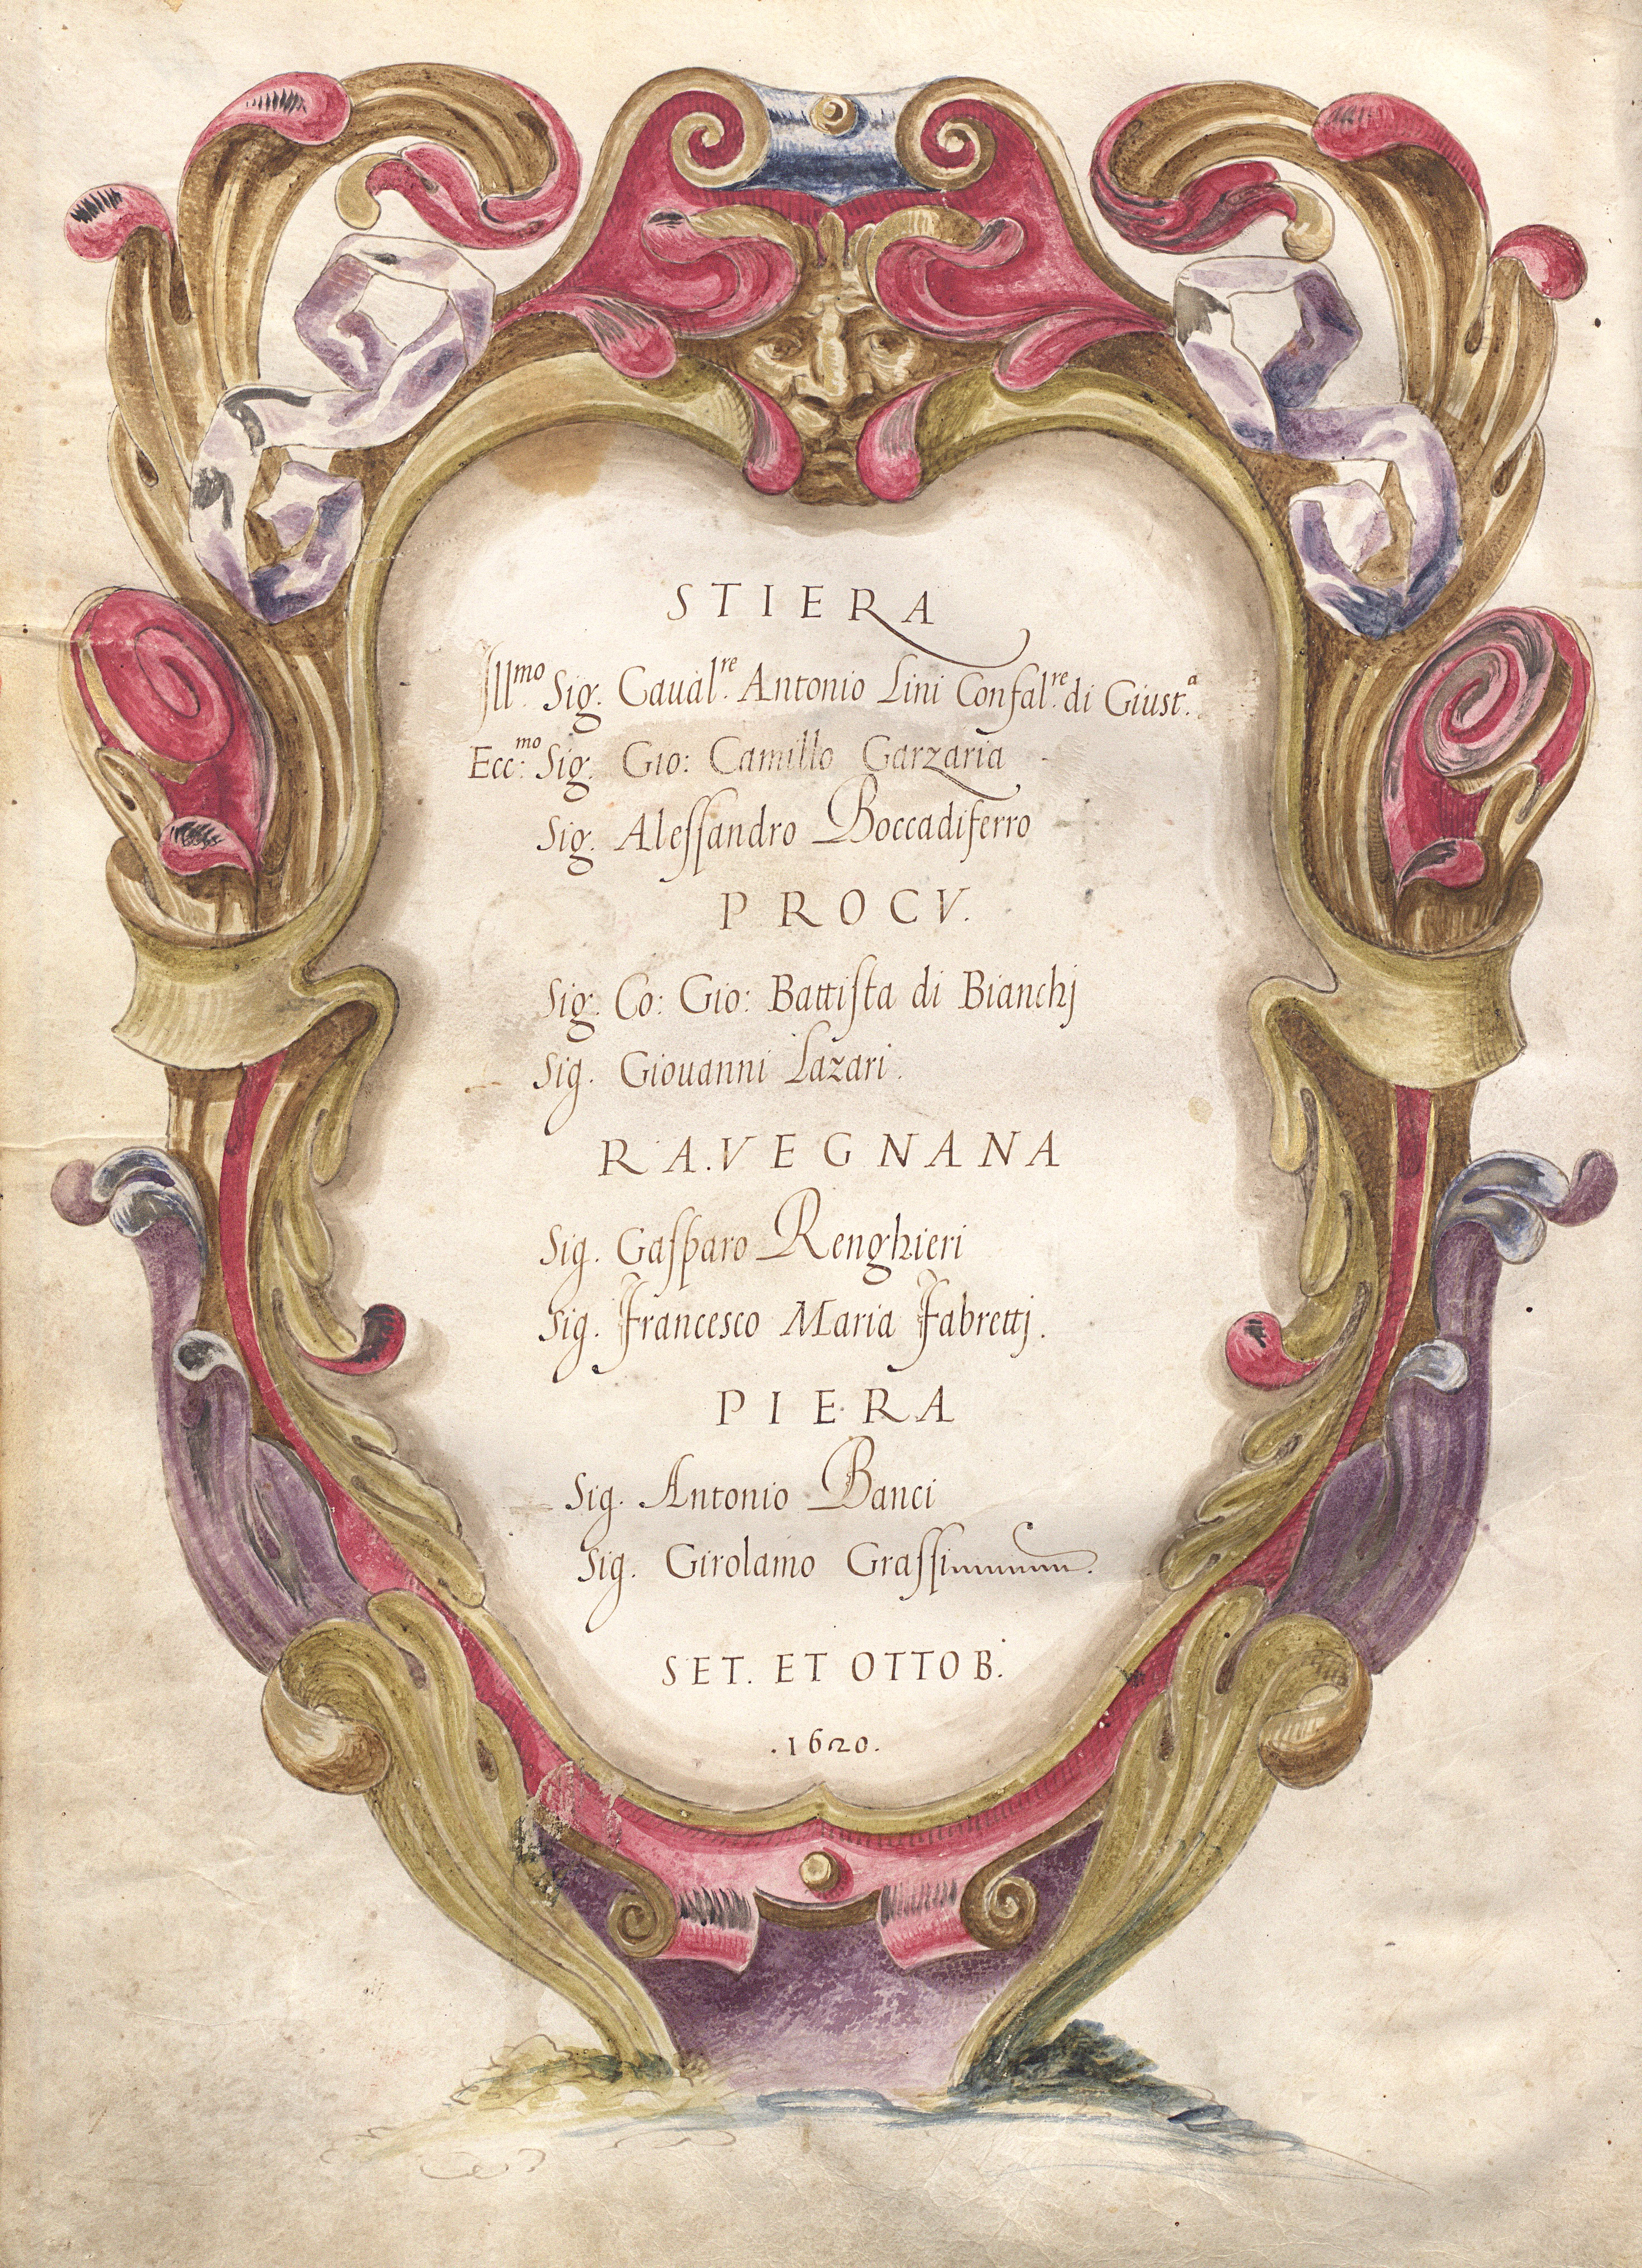 STIERA
Ill.mo Sig. Caual.re Antonio Lini Confal.re di Giust.a
Ecc.mo Sig. Gio: Camillo Garzaria
Sig. Aleſſandro Boccadiferro
PROCV.
Sig. Co: Gio: Battiſta di Bianchj
Sig. Giouanni Lazari.
RA.VEGNANA
Sig. Gaſparo Renghieri
Sig. Francesco Maria Fabrettj.
PIERA
Sig. Antonio Banci
Sig. Girolamo Graſſi
SET. ET OTTOB.
.1620.